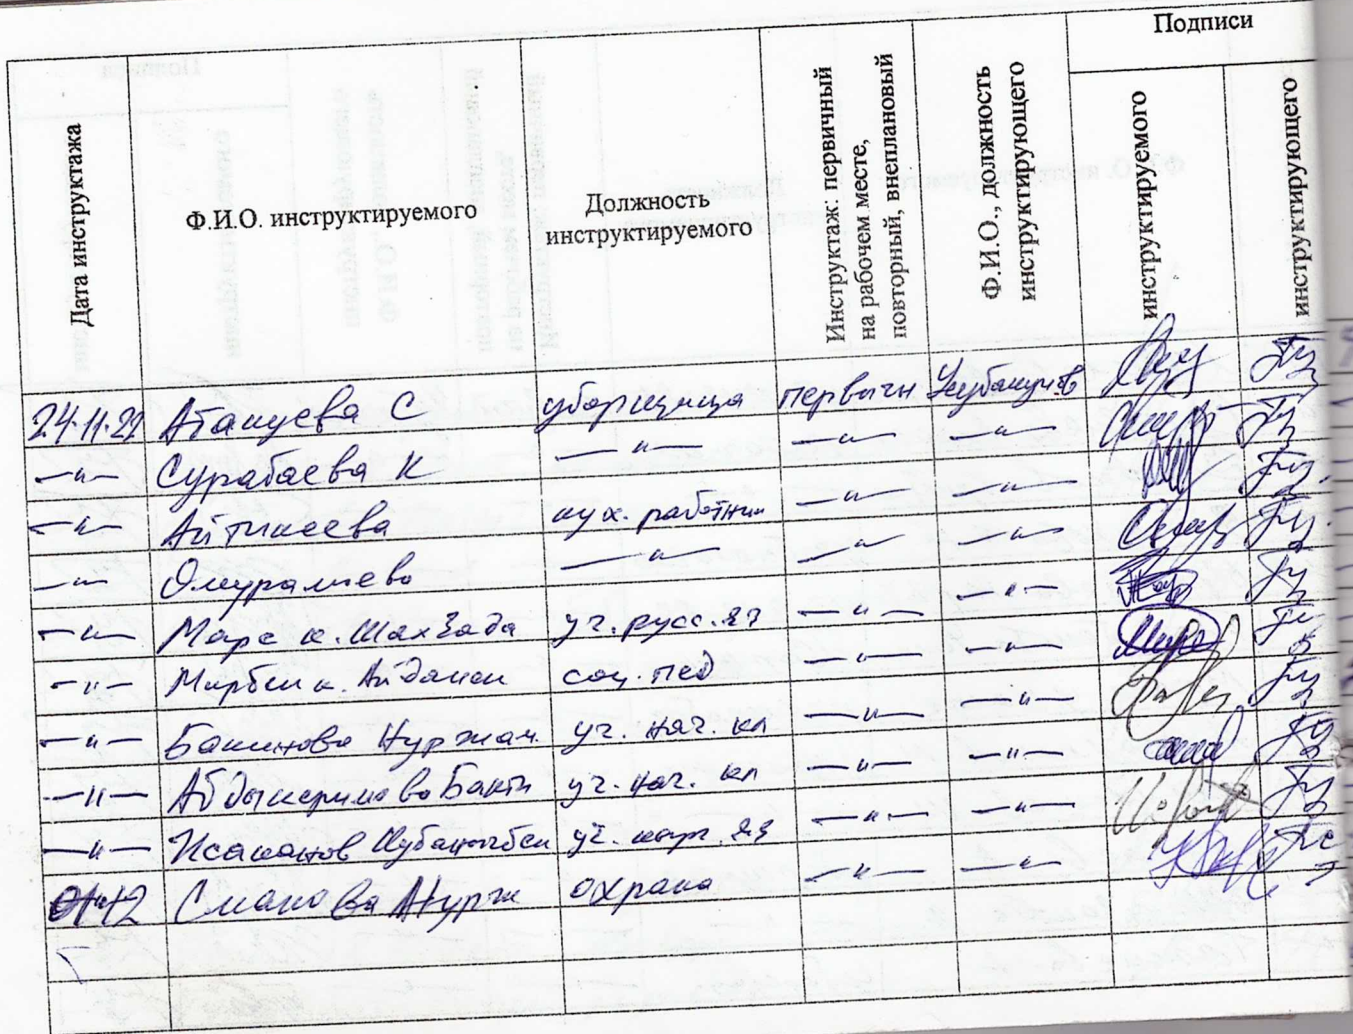 Подписи
Дата инструктажа
Ф.И.О. инструктируемого
Должность
инструктируемого
Инструктаж: первичный
на рабочем месте,
повторный, внеплановый
Ф.И.О., должность
инструктирующего
инструктируемого
инструктирующего
24.11.22 Атануева С уборщица первичн
—〃— Сурабаева К —〃— —〃— —〃—
—〃— Айтикеева кух. работник —〃— —〃—
—〃— Омуралиева —〃— —〃— —〃—
—〃— Марс к. Шахзада уч. русс. яз —〃— —〃—
—〃— к. соц. пед —〃— —〃—
—〃— Бакинова Нуржан уч. нач. кл —〃— —〃—
—〃— Абдыкеримова Бакти уч. нач. кл —〃— —〃—
—〃— Исаканов Кубанычбек —〃— —〃—
01.12 Сманова охрана —〃— —〃—